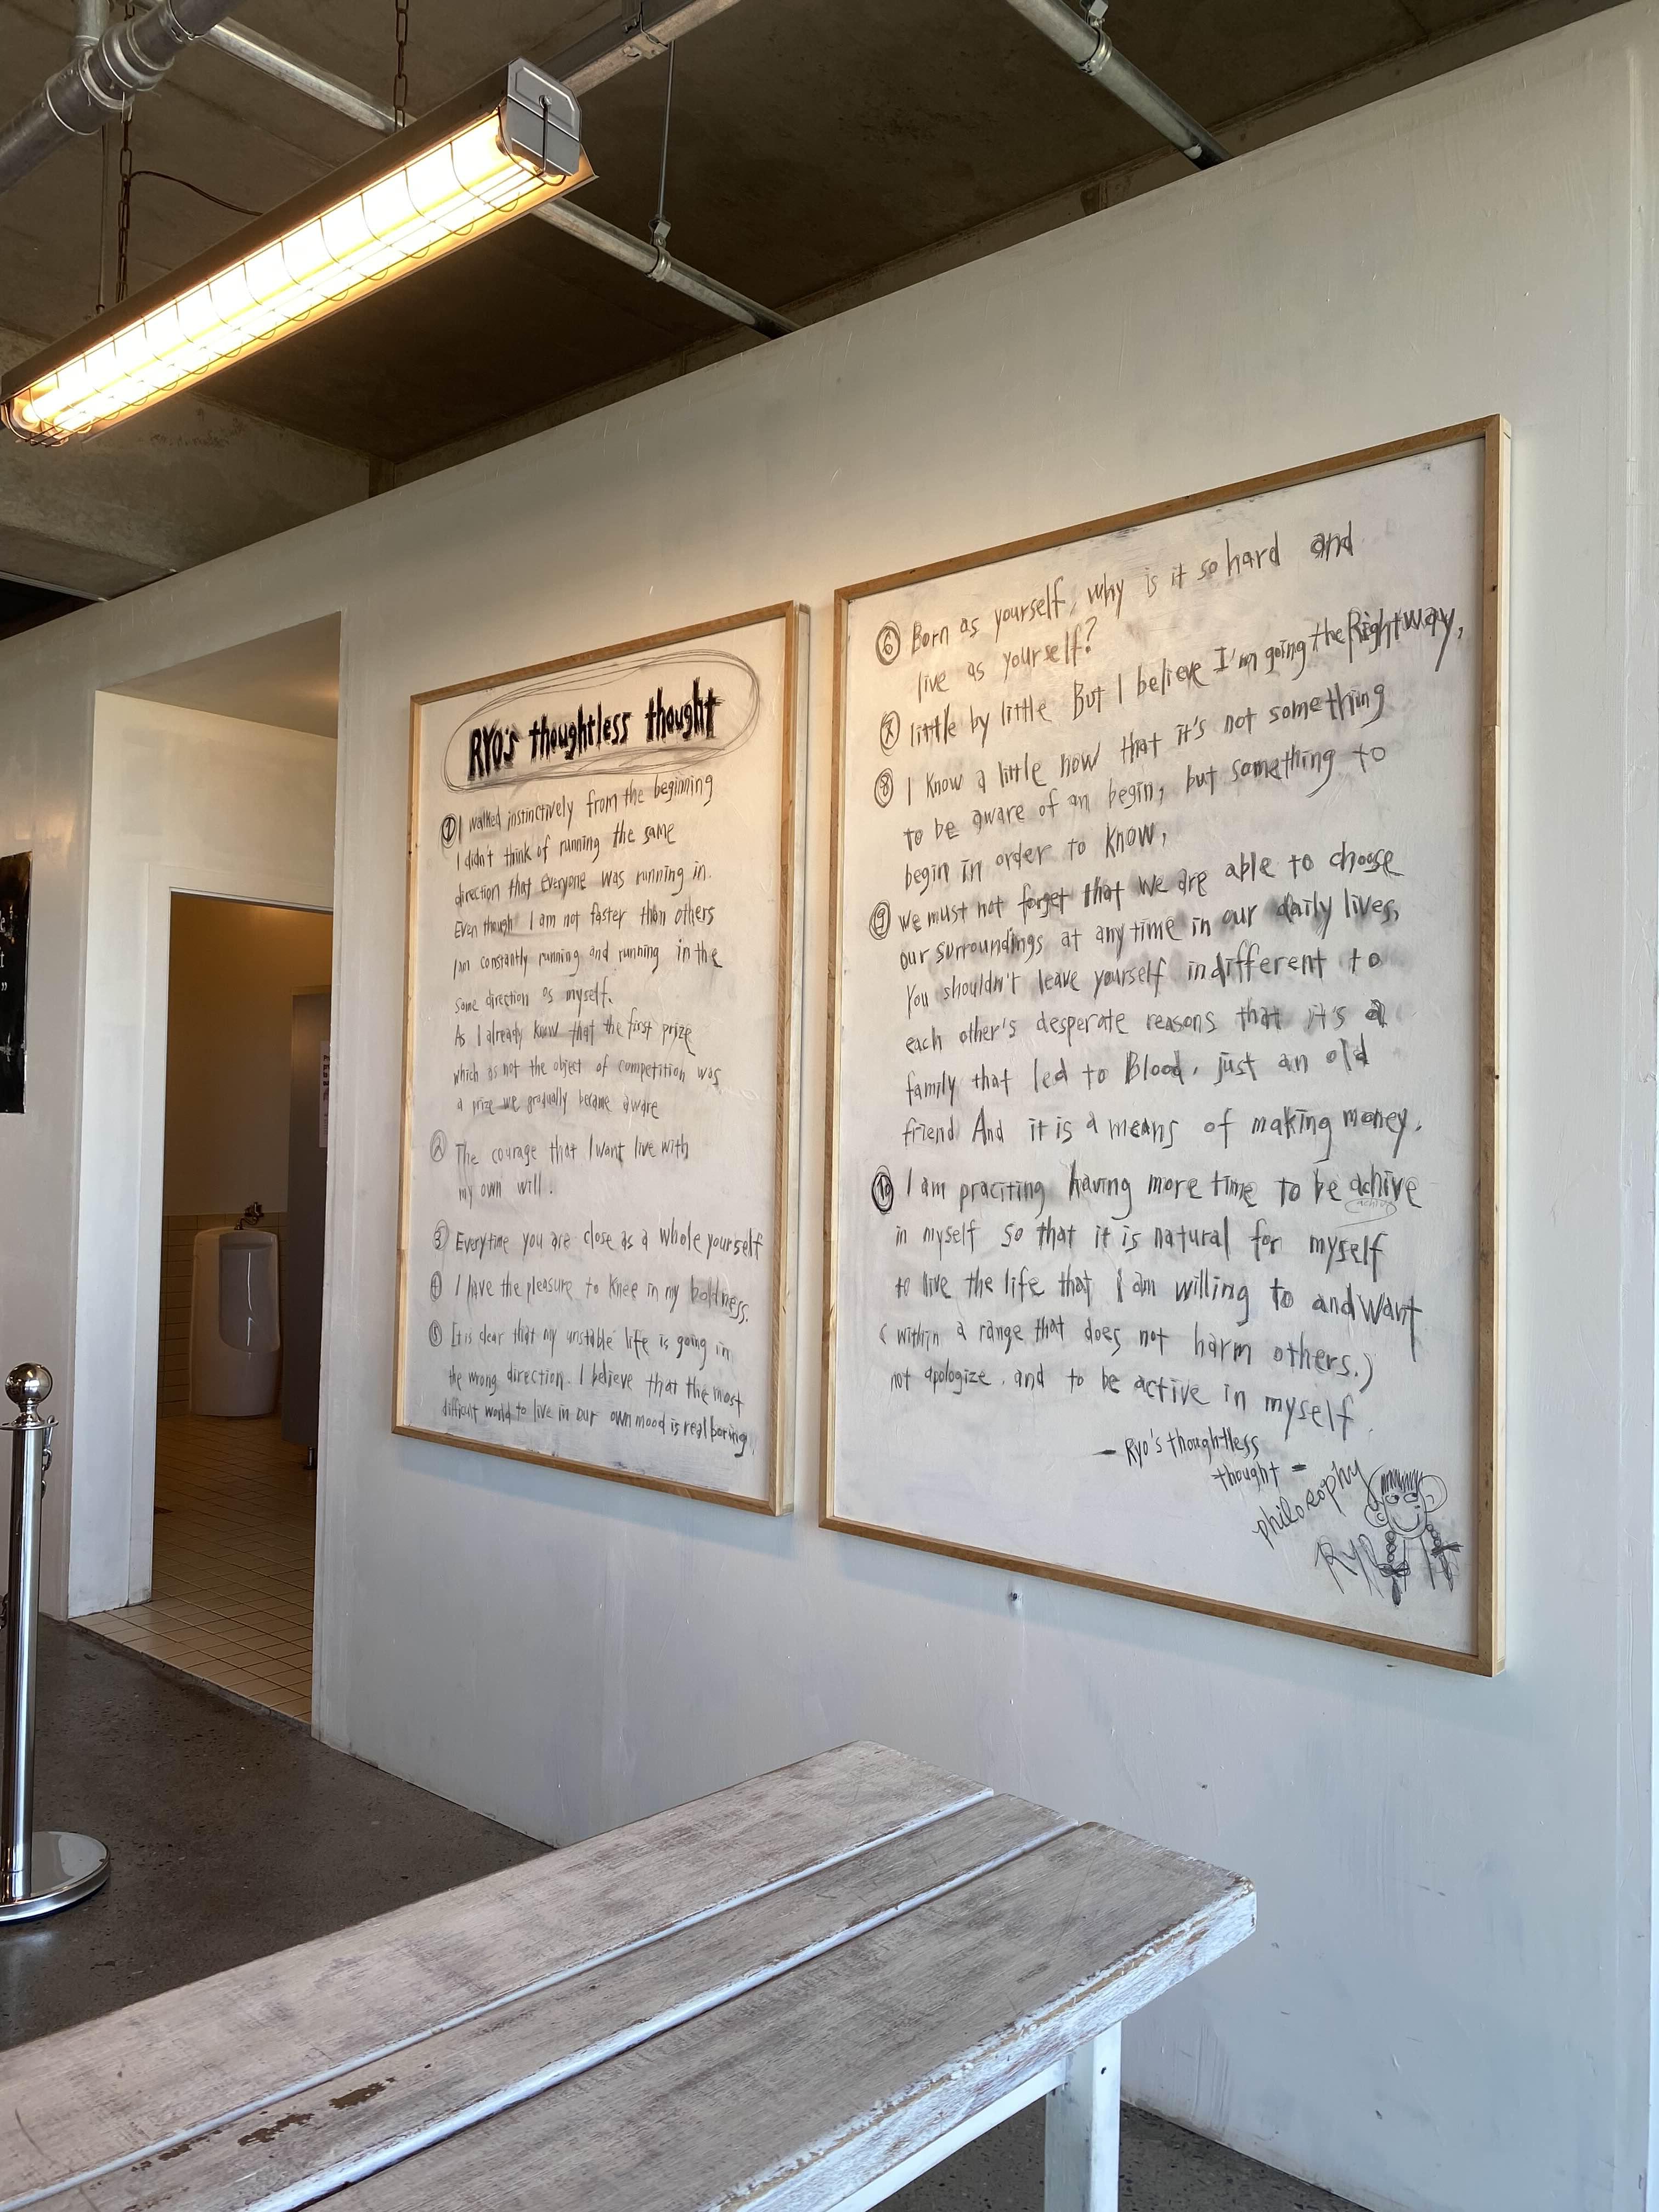 RYO'S thoughtless thought
① I walked instinctively from the beginning
I didn't think of running the same
direction that everyone was running in.
Even though I am not faster than others
I am constantly running and running in the
same direction as myself.
As I already know that the first prize
which as not the object of competition was
a prize we gradually became aware
② The courage that I want live with
my own will.
③ Everytime you are close as a whole yourself
④ I have the pleasure to knee in my boldness.
⑤ It is clear that my unstable life is going in
the wrong direction. I believe that the most
difficult world to live in our own mood is real boring.
⑥ Born as yourself, why is it so hard and
live as yourself?
⑦ little by little But I believe I'm going the Right way,
⑧ I know a little now that it's not something
to be aware of an begin, but something to
begin in order to know,
⑨ we must not forget that we are able to choose
our surroundings at any time in our daily lives,
You shouldn't leave yourself indifferent to
each other's desperate reasons that it's a
family that led to Blood, just an old
friend And it is a means of making money.
⑩ I am praciting having more time to be achive
in myself so that it is natural for myself
to live the life that I am willing to and want
(within a range that does not harm others.)
not apologize. and to be active in myself.
- Ryo's thoughtless
thought -
philosophy
RYO